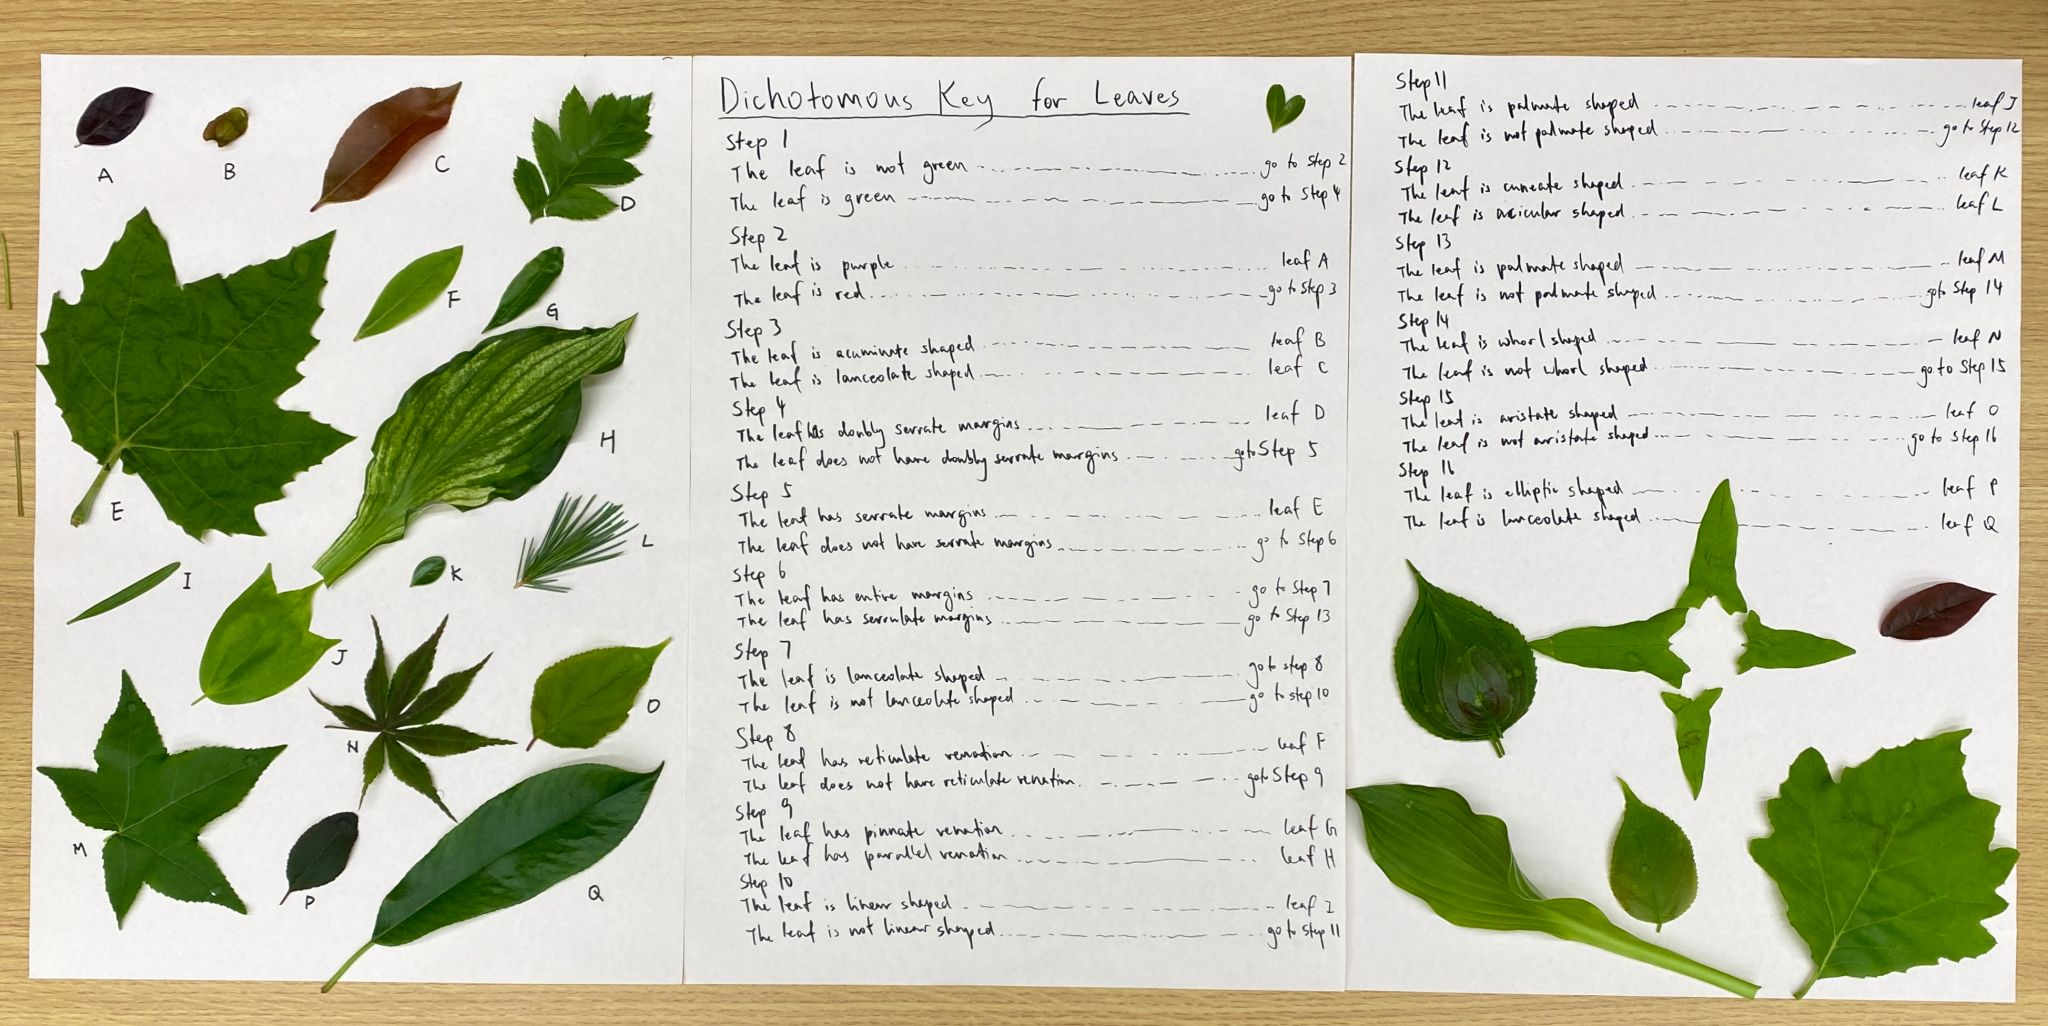 A
B
C
D
E
F
G
H
I
J
K
L
M
N
O
P
Q
Dichotomous Key for Leaves
Step 1
The leaf is not green go to Step 2
The leaf is green go to Step 4
Step 2
The leaf is purple leaf A
The leaf is red go to Step 3
Step 3
The leaf is acuminate shaped leaf B
The leaf is lanceolate shaped leaf C
Step 4
The leaf has doubly serrate margins leaf D
The leaf does not have doubly serrate margins go to Step 5
Step 5
The leaf has serrate margins leaf E
The leaf does not have serrate margins go to Step 6
Step 6
The leaf has entire margins go to Step 7
The leaf has serrulate margins go to Step 13
Step 7
The leaf is lanceolate shaped go to step 8
The leaf is not lanceolate shaped go to step 10
Step 8
The leaf has reticulate venation leaf F
The leaf does not have reticulate venation. go to Step 9
Step 9
The leaf has pinnate venation leaf G
The leaf has parallel venation leaf H
Step 10
The leaf is linear shaped leaf I
The leaf is not linear shaped go to Step 11
Step 11
The leaf is palmate shaped leaf J
The leaf is not palmate shaped go to Step 12
Step 12
The leaf is cuneate shaped leaf K
The leaf is acicular shaped leaf L
Step 13
The leaf is palmate shaped leaf M
The leaf is not palmate shaped go to Step 14
Step 14
The leaf is whorl shaped leaf N
The leaf is not whorl shaped go to Step 15
Step 15
The leaf is aristate shaped leaf O
The leaf is not aristate shaped go to Step 16
Step 16
The leaf is elliptic shaped leaf P
The leaf is lanceolate shaped leaf Q